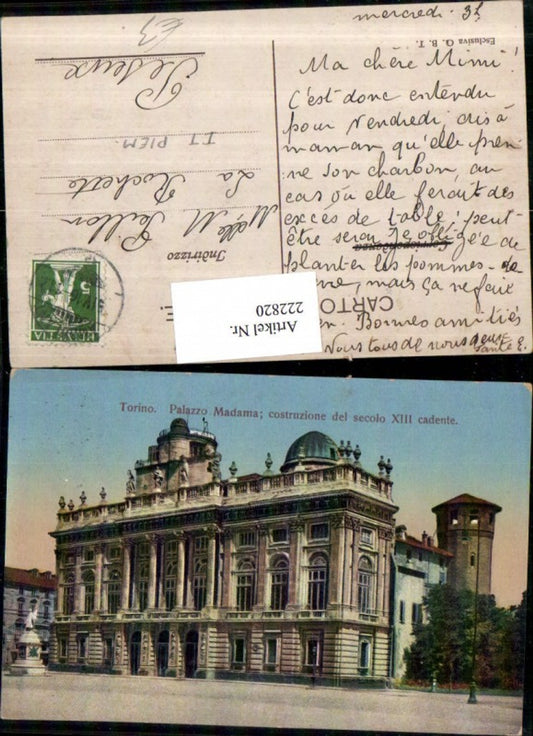 mercredi. 3h
Ma chère Mimi!
C'est donc entendu
pour Vendredi; dis à
maman qu'elle pren-
ne son charbon, au
cas où elle ferait des
excès de table; peut-
être serai je obligée de
planter les pommes-de
mais ça ne feue
Bonnes amitiés
Nous tous de nous deux
Esclusiva G. B. T.
Corrispondenza
CARTO
Indirizzo
Mlle M. Paillon
La Rochette
IT PIEM.
Peseux
£3
5
HELVETIA
Artikel Nr.
222820
Torino. Palazzo Madama; costruzione del secolo XIII cadente.